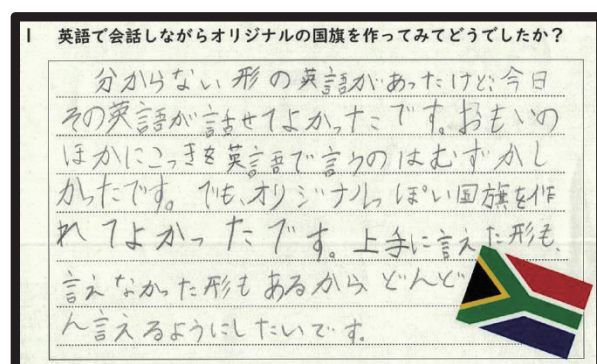 1 英語で会話しながらオリジナルの国旗を作ってみてどうでしたか？
分からない形の英語があったけど、今日
その英語が話せてよかったです。おもいの
ほかにこっきを英語で言うのはむずかし
かったです。でも、オリジナルっぽい国旗を作
れてよかったです。上手に言えた形も、
言えなかった形もあるからどんど
ん言えるようにしたいです。